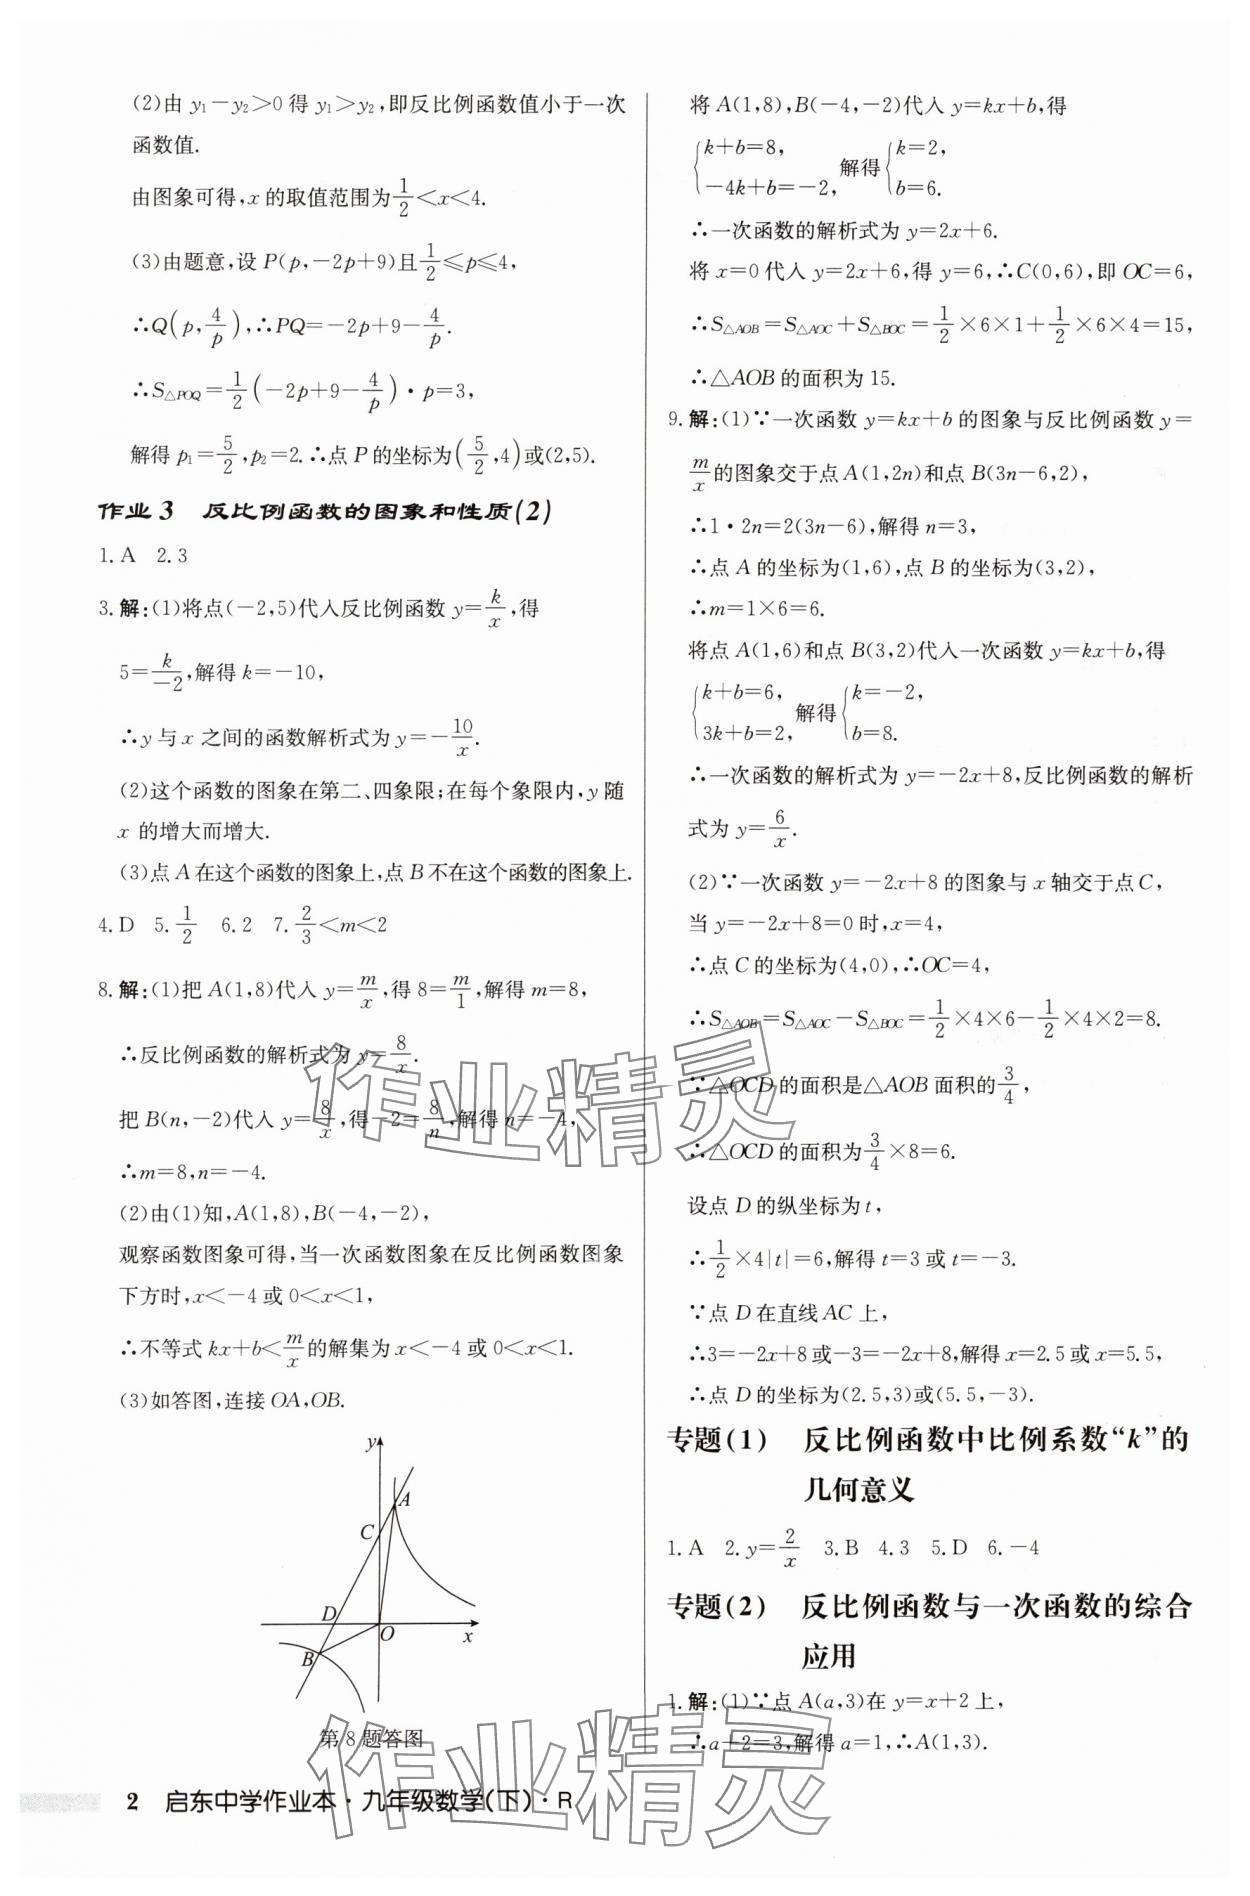 (2)由 y₁－y₂＞0 得 y₁＞y₂,即反比例函数值小于一次
函数值.
由图象可得,x 的取值范围为 1/2＜x＜4.
(3)由题意,设 P(p,－2p＋9)且 1/2≤p≤4,
∴Q(p, 4/p),∴PQ＝－2p＋9－4/p.
∴S△POQ＝1/2(－2p＋9－4/p)·p＝3,
解得 p₁＝5/2,p₂＝2.∴点 P 的坐标为(5/2,4)或(2,5).
作业 3　反比例函数的图象和性质(2)
1.A　2.3
3.解:(1)将点(－2,5)代入反比例函数 y＝k/x,得
5＝k/－2,解得 k＝－10,
∴y 与 x 之间的函数解析式为 y＝－10/x.
(2)这个函数的图象在第二、四象限;在每个象限内,y 随
x 的增大而增大.
(3)点 A 在这个函数的图象上,点 B 不在这个函数的图象上.
4.D　5. 1/2　6.2　7. 2/3＜m＜2
8.解:(1)把 A(1,8)代入 y＝m/x,得 8＝m/1,解得 m＝8,
∴反比例函数的解析式为 y＝8/x.
把 B(n,－2)代入 y＝8/x,得－2＝8/n,解得 n＝－4,
∴m＝8,n＝－4.
(2)由(1)知,A(1,8),B(－4,－2),
观察函数图象可得,当一次函数图象在反比例函数图象
下方时,x＜－4 或 0＜x＜1,
∴不等式 kx＋b＜m/x 的解集为 x＜－4 或 0＜x＜1.
(3)如答图,连接 OA,OB.
y
A
C
D
O
x
B
第 8 题答图
将 A(1,8),B(－4,－2)代入 y＝kx＋b,得
{k＋b＝8, －4k＋b＝－2, 解得 {k＝2, b＝6.
∴一次函数的解析式为 y＝2x＋6.
将 x＝0 代入 y＝2x＋6,得 y＝6,∴C(0,6),即 OC＝6,
∴S△AOB＝S△AOC＋S△BOC＝1/2×6×1＋1/2×6×4＝15,
∴△AOB 的面积为 15.
9.解:(1)∵一次函数 y＝kx＋b 的图象与反比例函数 y＝
m/x 的图象交于点 A(1,2n)和点 B(3n－6,2),
∴1·2n＝2(3n－6),解得 n＝3,
∴点 A 的坐标为(1,6),点 B 的坐标为(3,2),
∴m＝1×6＝6.
将点 A(1,6)和点 B(3,2)代入一次函数 y＝kx＋b,得
{k＋b＝6, 3k＋b＝2, 解得 {k＝－2, b＝8.
∴一次函数的解析式为 y＝－2x＋8,反比例函数的解析
式为 y＝6/x.
(2)∵一次函数 y＝－2x＋8 的图象与 x 轴交于点C,
当 y＝－2x＋8＝0 时,x＝4,
∴点 C 的坐标为(4,0),∴OC＝4,
∴S△AOB＝S△AOC－S△BOC＝1/2×4×6－1/2×4×2＝8.
∵△OCD 的面积是△AOB 面积的 3/4,
∴△OCD 的面积为 3/4×8＝6.
设点 D 的纵坐标为 t,
∴1/2×4|t|＝6,解得 t＝3 或 t＝－3.
∵点 D 在直线 AC 上,
∴3＝－2x＋8 或－3＝－2x＋8,解得 x＝2.5 或 x＝5.5,
∴点 D 的坐标为(2.5,3)或(5.5,－3).
专题(1)　反比例函数中比例系数“k”的
几何意义
1.A　2.y＝2/x　3.B　4.3　5.D　6.－4
专题(2)　反比例函数与一次函数的综合
应用
1.解:(1)∵点 A(a,3)在 y＝x＋2 上,
∴a＋2＝3,解得 a＝1,∴A(1,3).
2　启东中学作业本·九年级数学(下)·R
作业精灵
作业精灵